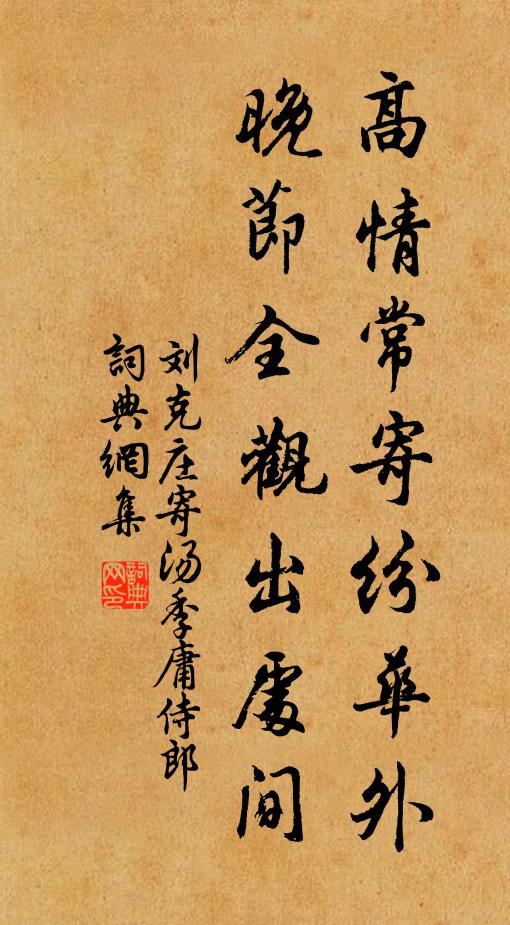 高情常寄纷華外
晚節全觀出處間
刘克庄寄汤季庸侍郎
詞典網集
詞典网印